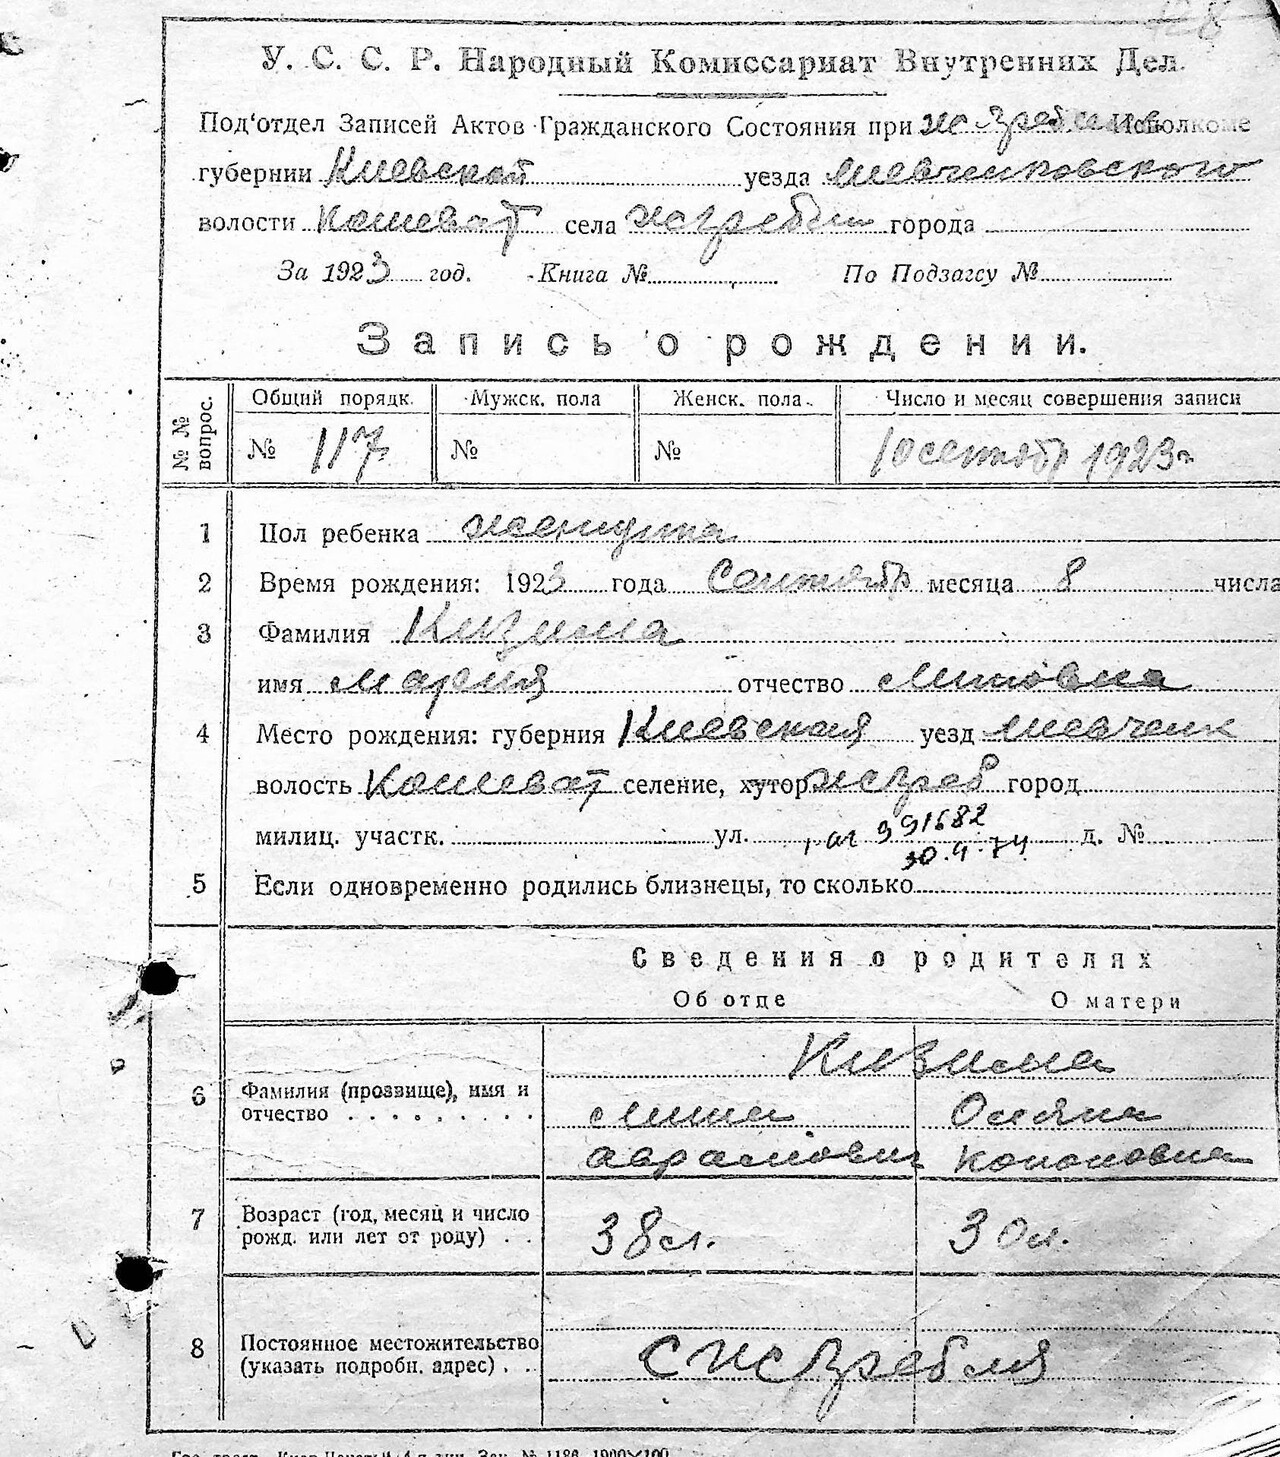 У. С. С. Р. Народный Комиссариат Внутренних Дел.
Под'отдел Записей Актов Гражданского Состояния при Исполкоме
губернии Киевской уезда Шевченковского
волости Кошеват села города
За 1923 год. Книга № По Подзагсу №
Запись о рождении.
№ № вопрос.
Общий порядк. Мужск. пола Женск. пола Число и месяц совершения записи
№ 117 № № 10 сентябр 1923 г
1 Пол ребенка
2 Время рождения: 1923 года Сентябр месяца 8 числа
3 Фамилия Кизима
имя Мария отчество Миновна
4 Место рождения: губерния Киевская уезд Шевченк
волость Кошеват селение, хутор Жезреб город
милиц. участк. ул. 391682 д. №
30.4.74
5 Если одновременно родились близнецы, то сколько
Сведения о родителях
Об отце О матери
Кизима
6 Фамилия (прозвище), имя и
отчество Мина Оляна
Аврамович Кононовна
7 Возраст (год, месяц и число
рожд. или лет от роду) 38 л. 30 л.
8 Постоянное местожительство
(указать подробн. адрес)